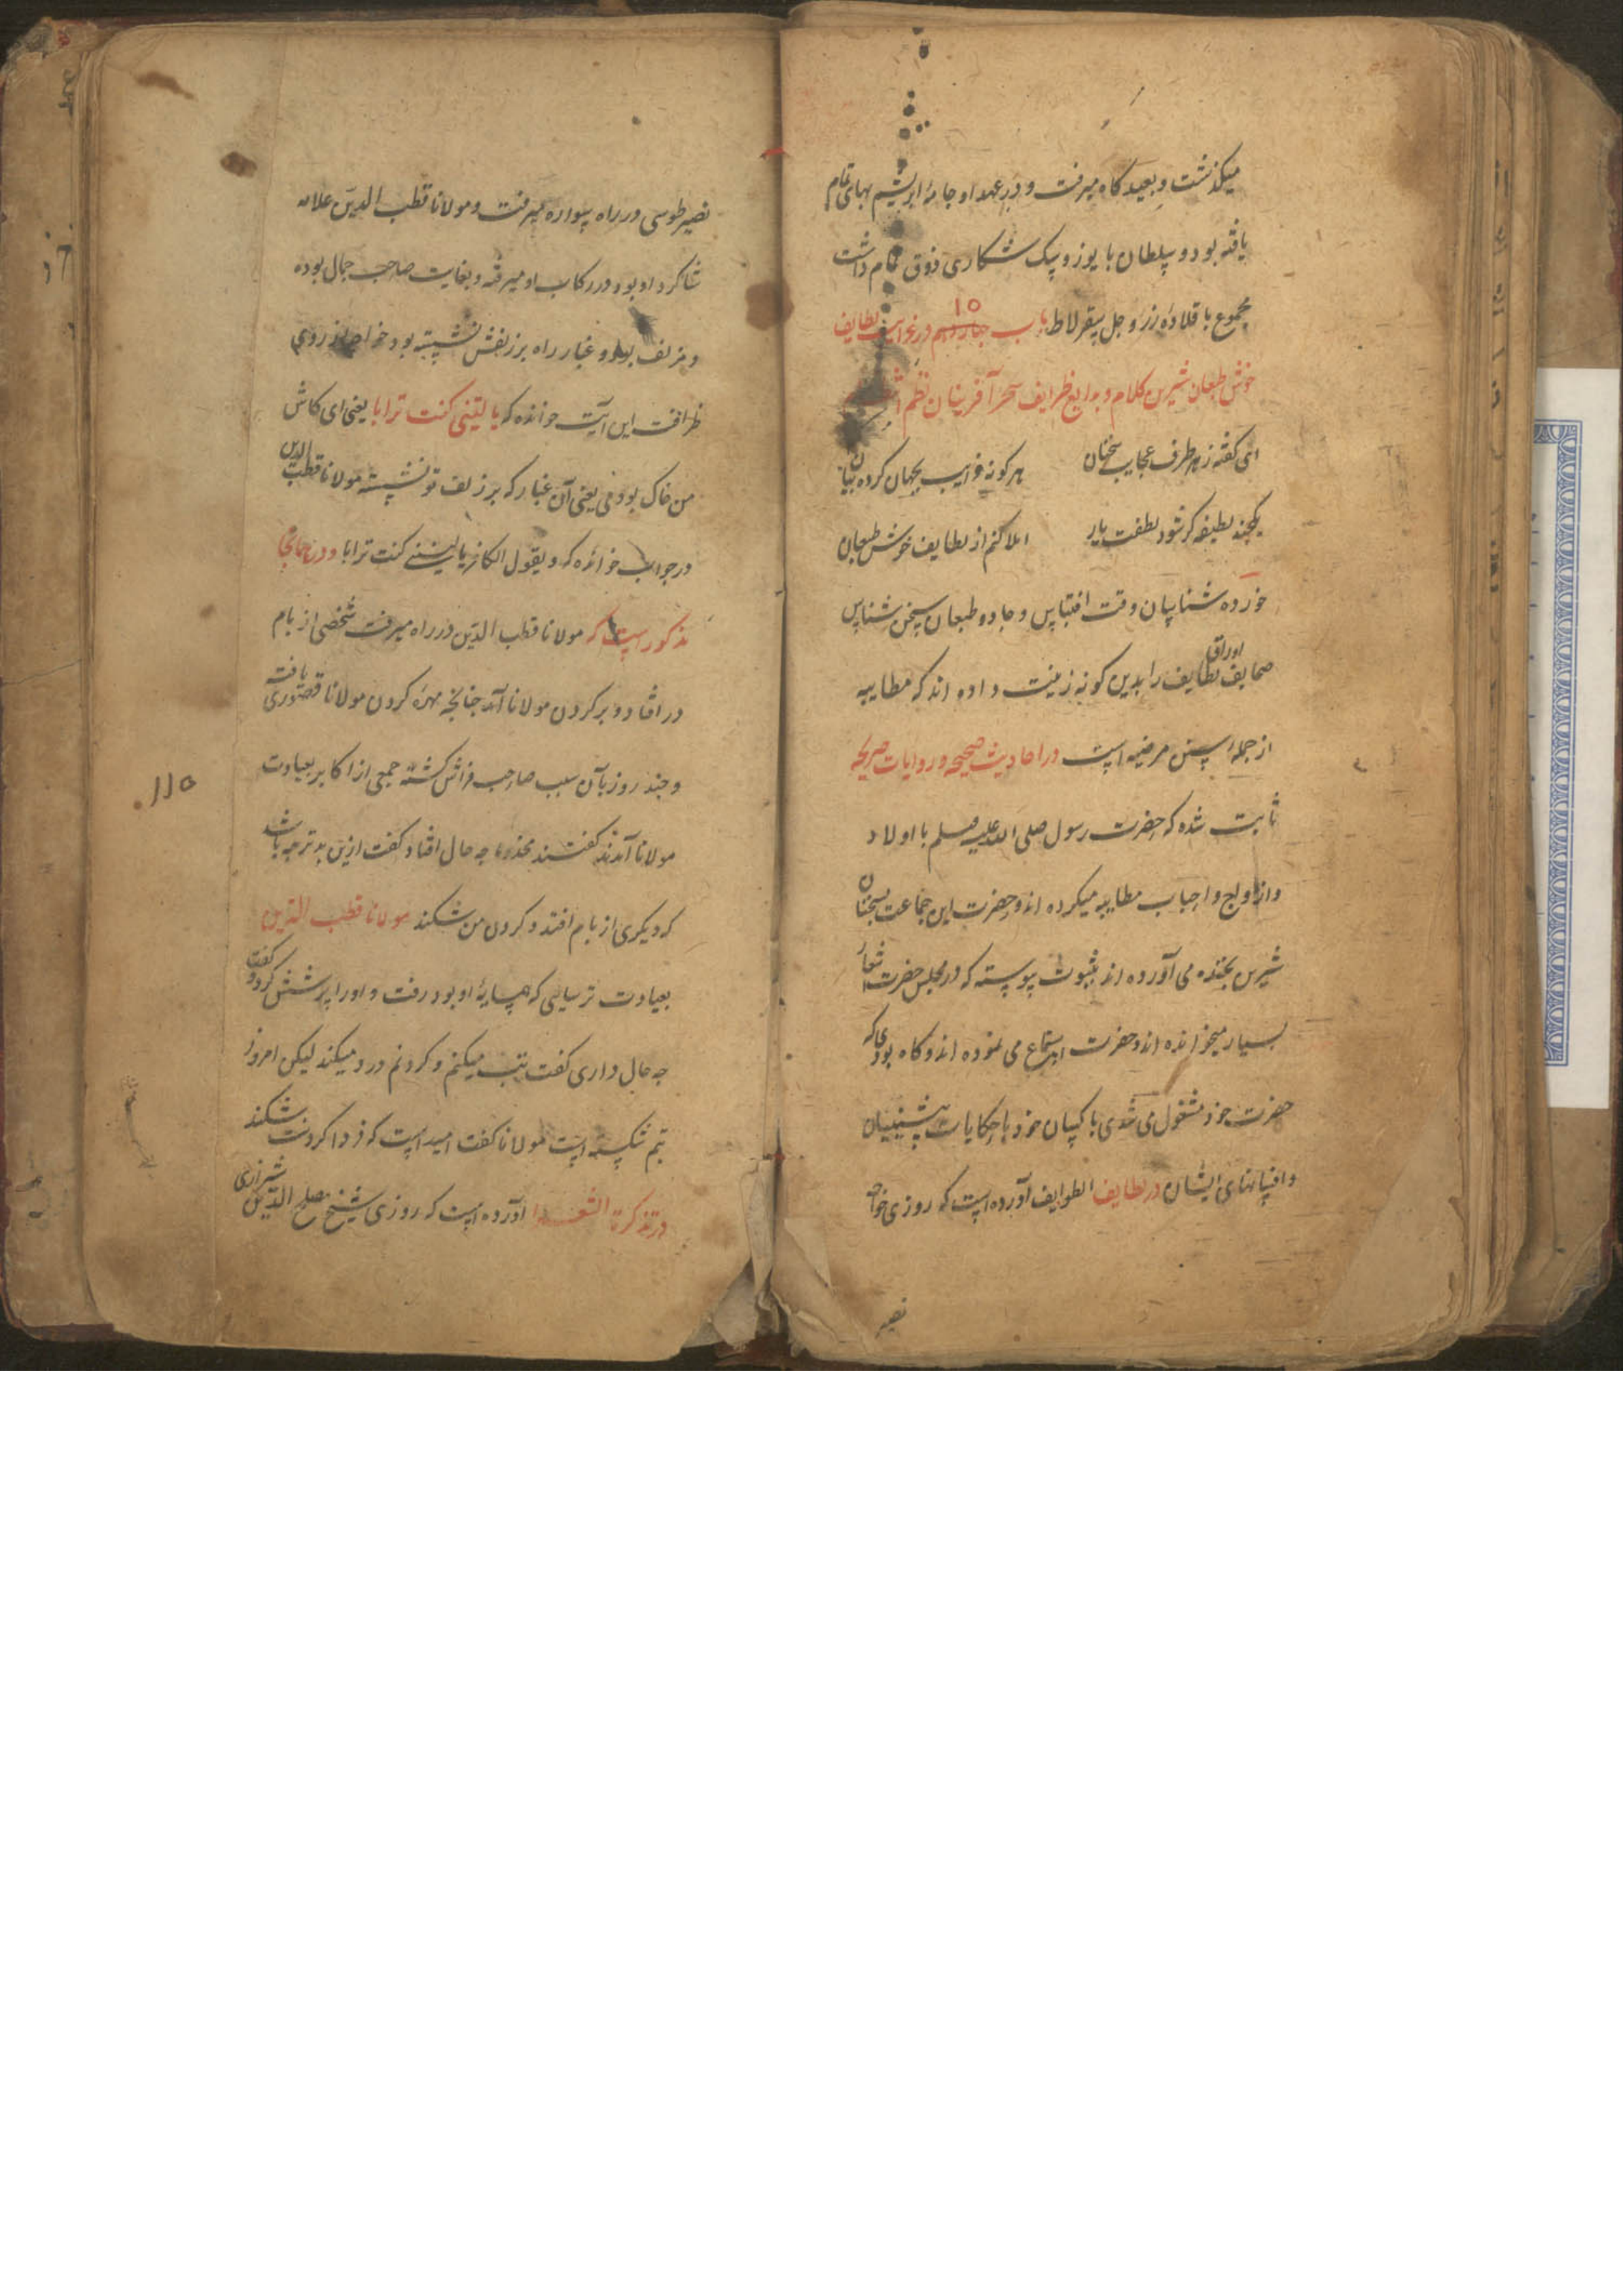 میکذشت و بعیدکاه میرفت و در عهد او جامۀ ابریشم بهای تمام
یافته بود و سلطان با یوز و سک شکاری ذوق تمام داشت
مجموع با قلادۀ زر و جل سقرلاط باب جهاردهم در غرایب لطایف
۱۵
خوش طبعان شیرین کلام و بدایع ظرایف سحر آفرینان نظم
ای کفته ز هر طرف عجایب سخنان
هر کونه غرایب بجهان کرده بیان
یکچند لطیفه کر شود لطفت یار
املا کنم از لطایف خوش طبعان
خورده شناسان وقت اقتباس و جادو طبعان سخن شناس
صحایف اوراق لطایف را بدین کونه زینت داده اند که مطایبه
از جمله سنن مرضیه است در احادیث صحیحه و روایات صریحه
ثابت شده که حضرت رسول صلی الله علیه وسلم با اولاد
و ازواج و احباب مطایبه میکرده اند و حضرت این جماعت بسخنان
شیرین بخنده می آورده اند بثبوت پیوسته که در مجلس حضرت اشعار
بسیار میخوانده اند و حضرت استماع می نموده اند و کاه بودی که
حضرت خود مشغول می شدی با کسان خود با حکایات پیشینیان
و افسانهای ایشان در لطایف الطوایف آورده است که روزی خواجه
نصیر
نصیر طوسی در راه سواره میرفت و مولانا قطب الدین علامه
شاکرد او بود و در رکاب او میرفته و بغایت صاحب جمال بوده
و مزلف بود و غبار راه بر زلفش نشسته بود خواجه از روی
ظرافت این آیت خوانده که یا لیتنی کنت ترابا یعنی ای کاش
من خاک بودمی یعنی آن غبار که بر زلف تو نشسته مولانا قطب الدین
در جواب خوانده که و یقول الکافر یا لیتنی کنت ترابا و در
مذکور است که مولانا قطب الدین در راه میرفت شخصی از بام
در افتاد و بر کردن مولانا آمد جنانجه مهرۀ کردن مولانا قصوری یافت
و جند روز بآن سبب صاحب فراش کشته جمعی از اکابر بعیادت
مولانا آمدند کفتند مخدوما جه حال افتاد کفت ازین بدتر جه باشد
که دیکری از بام افتد و کردن من شکند مولانا قطب الدین
بعیادت ترسایی که همسایۀ او بود رفت و او را پرسش کرد و کفت
جه حال داری کفت تب میکنم و کردنم درد میکند لیکن امروز
تبم شکسته است مولانا کفت امید است که فردا کردنت شکند
در تذکرة الشعرا آورده است که روزی شیخ مصلح الدین شیرازی
۱۱۵